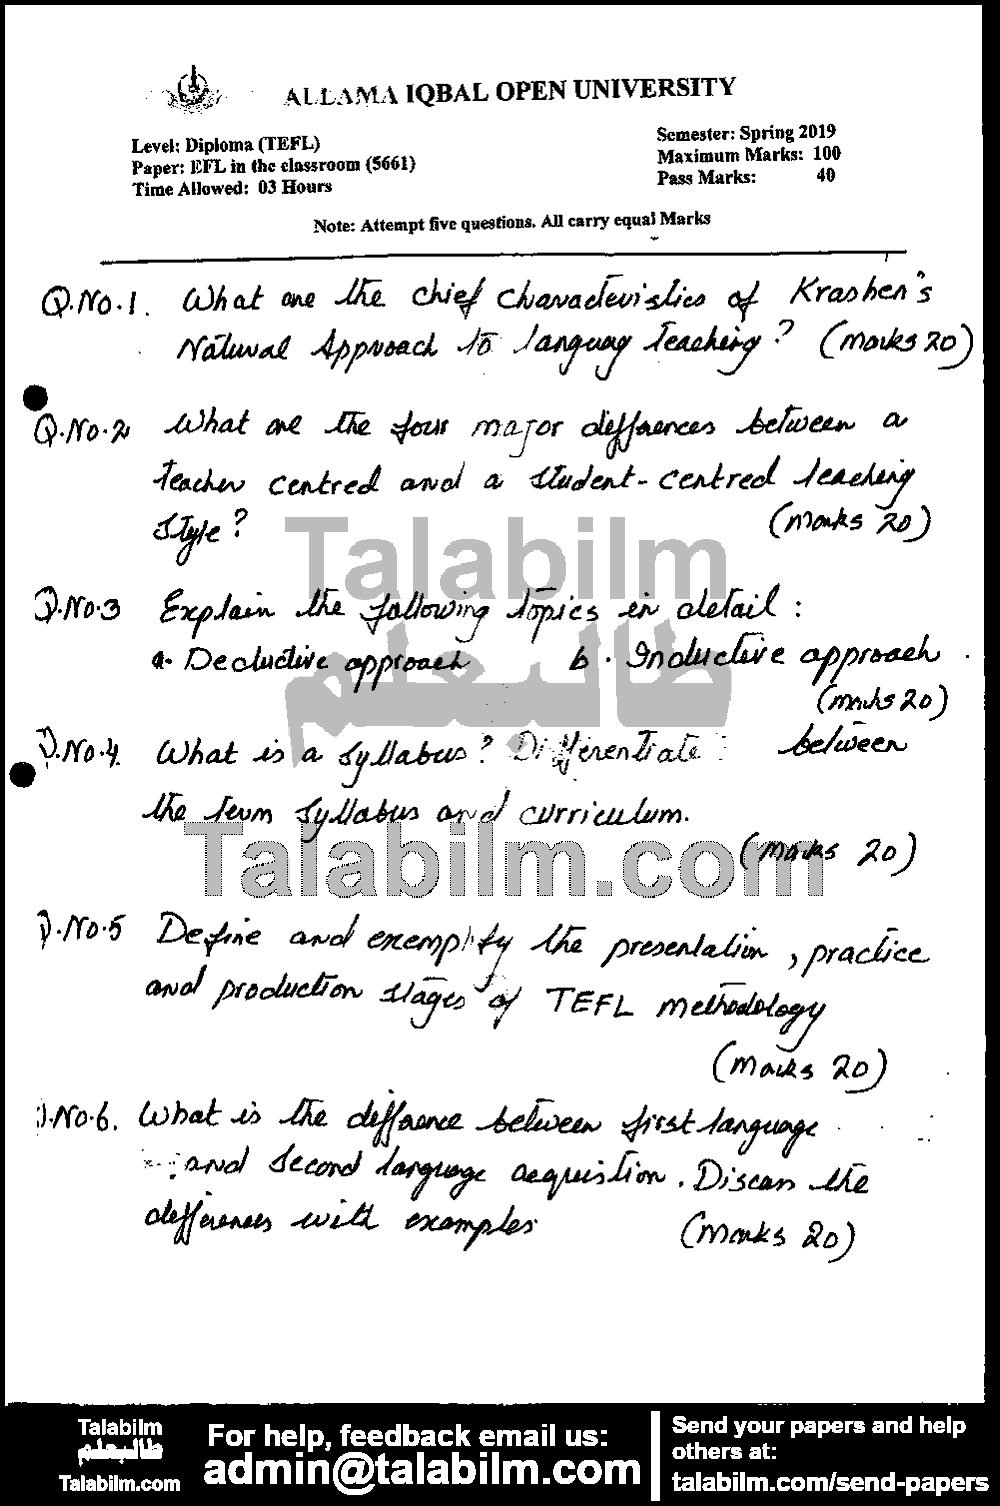 ALLAMA IQBAL OPEN UNIVERSITY
Level: Diploma (TEFL)
Semester: Spring 2019
Paper: EFL in the classroom (5661)
Maximum Marks: 100
Time Allowed: 03 Hours
Pass Marks: 40
Note: Attempt five questions. All carry equal Marks
Q.No.1. What are the chief characteristics of Krashen's
Natural Approach to languag teaching? (marks 20)
Q.No.2 What are the four major differences between a
teacher centred and a student-centred teaching
style? (marks 20)
Talabilm
Q.No.3 Explain the following topics in detail:
a. Deductive approach b. Inductive approach.
طالبعلم
(marks 20)
Q.No.4. What is a syllabus? Differentiate between
the term syllabus and curriculum.
Talabilm.com
(marks 20)
Q.No.5 Define and exemplify the presentation, practice
and production stages of TEFL methodology
(marks 20)
Q.No.6. What is the difference between first language
and second language acquistion. Discuss the
differences with examples (marks 20)
Talabilm
طالبعلم
Talabilm.com
For help, feedback email us:
admin@talabilm.com
Send your papers and help
others at:
talabilm.com/send-papers